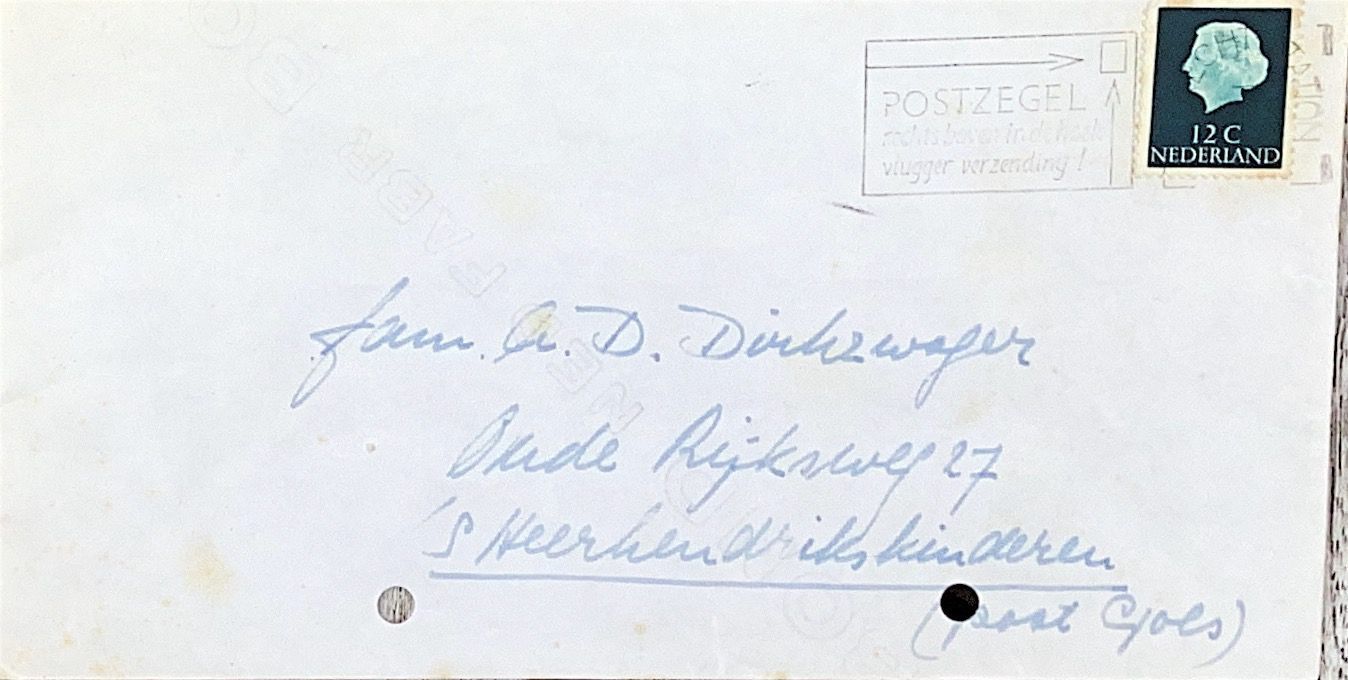 POSTZEGEL
rechts boven in de hoek
vlugger verzending !
12 C
NEDERLAND
STATION
fam. A. D. Dirkzwager
Oude Rijksweg 27
's Heerhendrikskinderen
(post Goes)